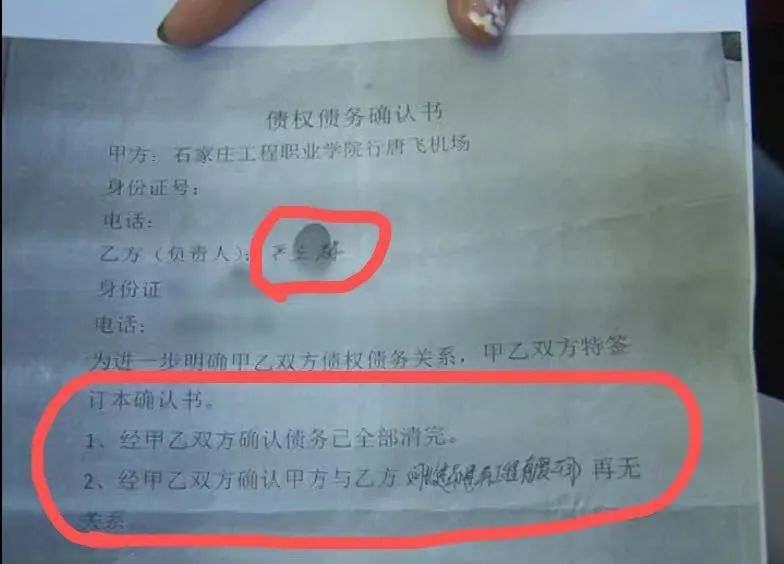 债权债务确认书
甲方：石家庄工程职业学院行唐飞机场
身份证号：
电话：
乙方（负责人）：
身份证
电话：
为进一步明确甲乙双方债权债务关系，甲乙双方特签
订本确认书。
1、经甲乙双方确认债务已全部清完。
2、经甲乙双方确认甲方与乙方 再无
关系。